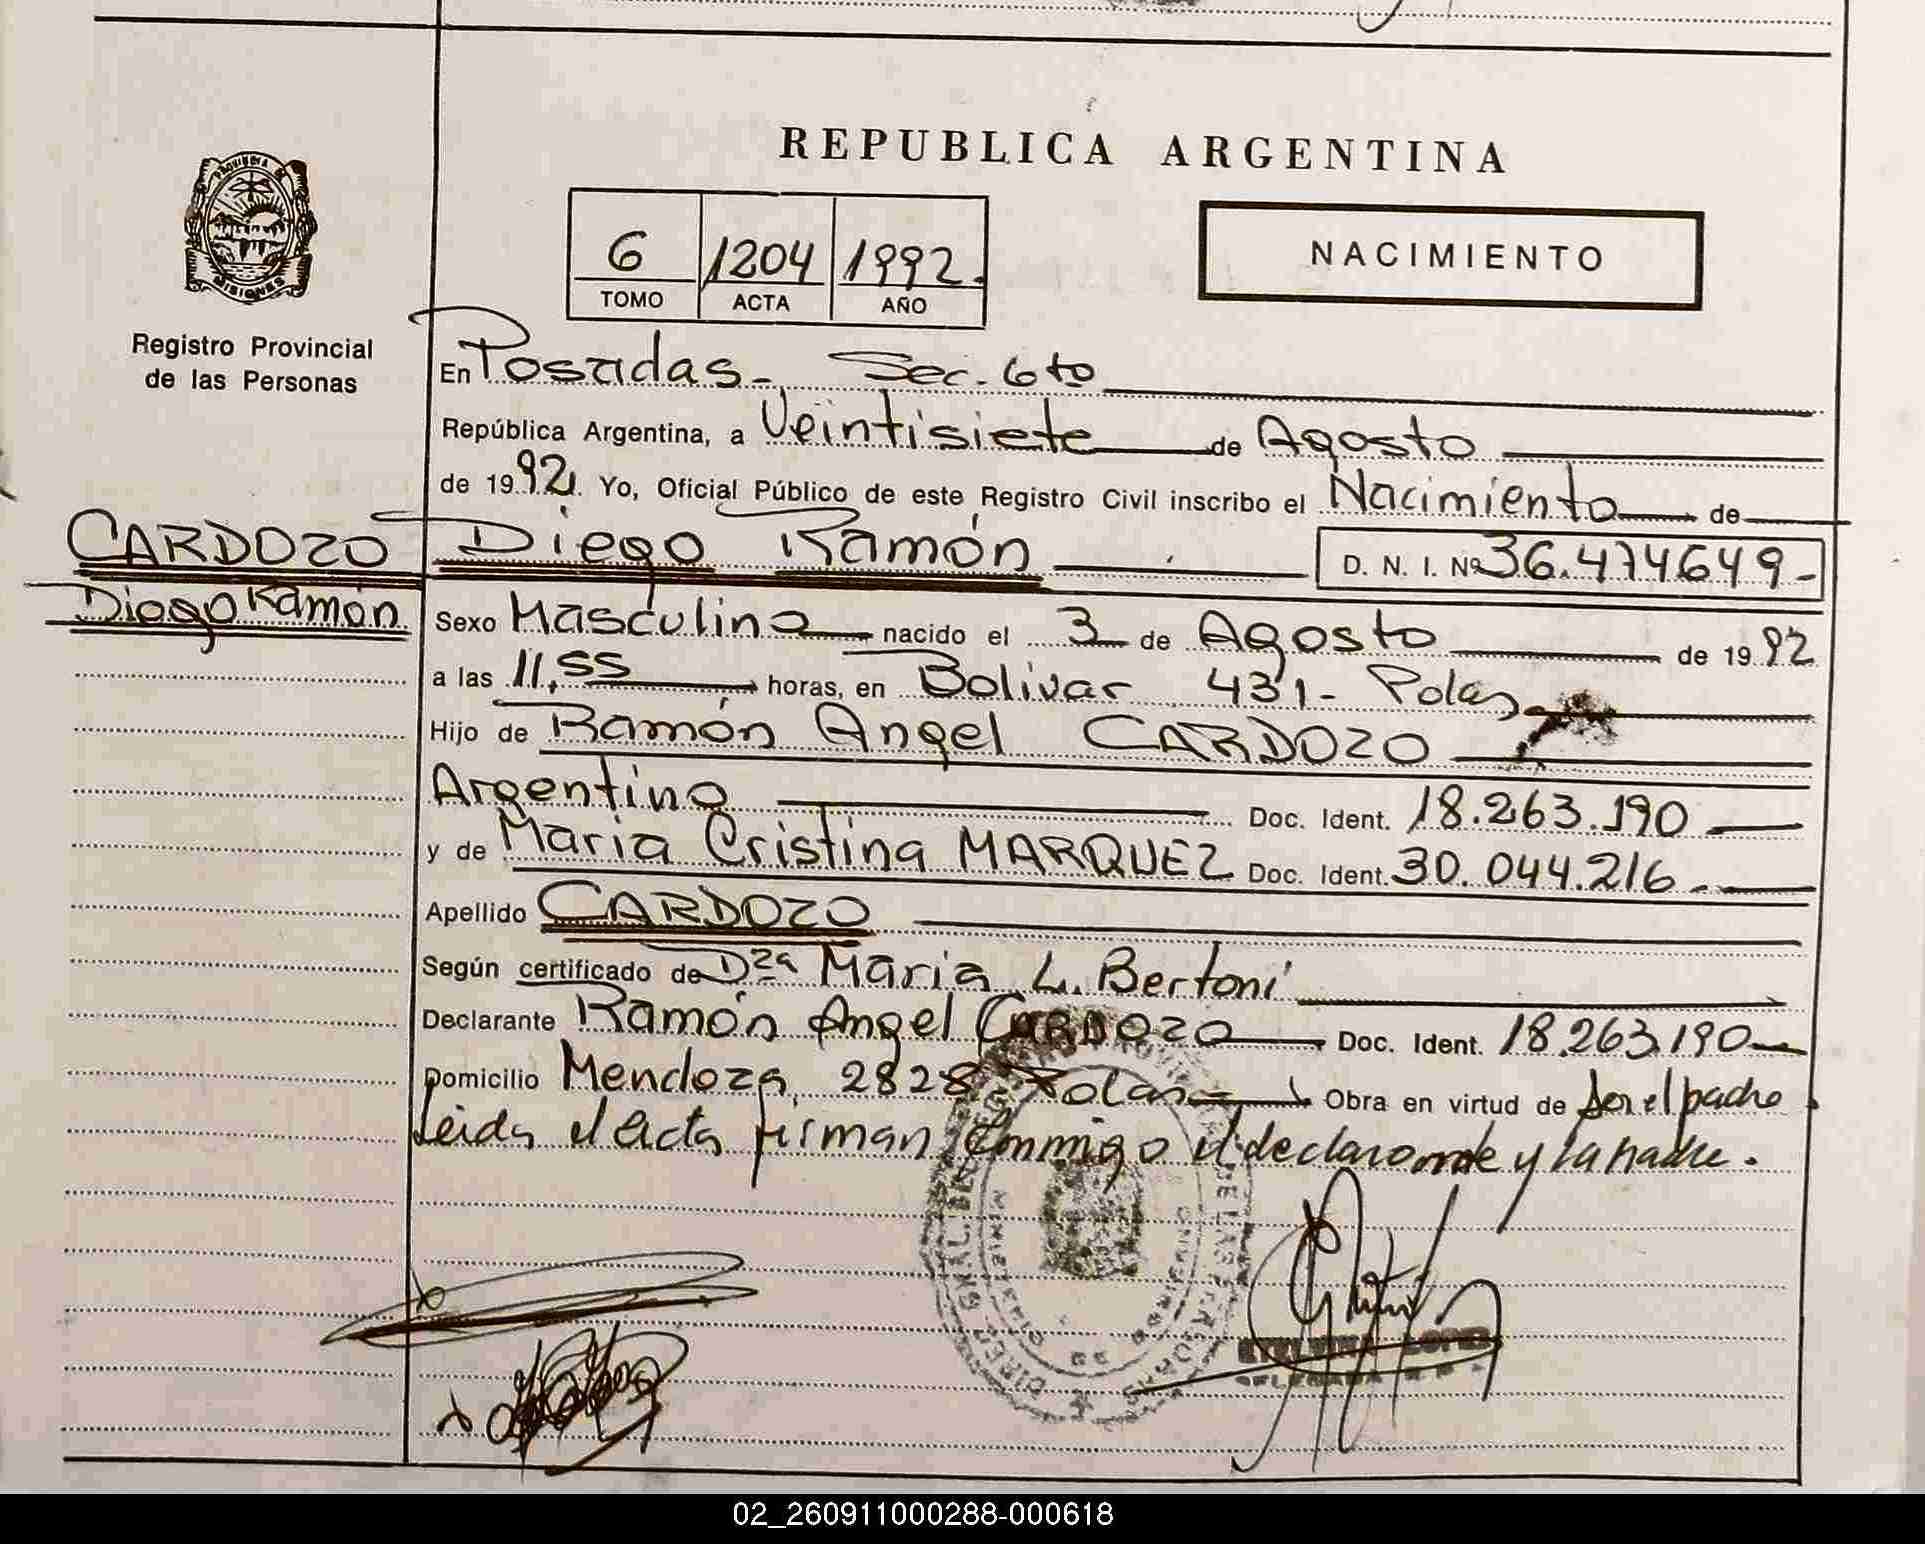 REPUBLICA ARGENTINA
PROVINCIA DE MISIONES
Registro Provincial
de las Personas
6 1204 1992.
TOMO ACTA AÑO
NACIMIENTO
En Posadas - Sec. 6to
República Argentina, a Veintisiete de Agosto
de 1992. Yo, Oficial Público de este Registro Civil inscribo el Nacimiento de
CARDOZO Diego Ramón D. N. I. Nº 36.474649-
Diego Ramón
Sexo Masculino nacido el 3 de Agosto de 1992
a las 11,55 horas, en Bolivar 431- Pdas
Hijo de Ramón Angel CARDOZO
Argentino Doc. Ident. 18.263.190
y de Maria Cristina MARQUEZ Doc. Ident. 30.044.216.
Apellido CARDOZO
Según certificado de Dra Maria L. Bertoni
Declarante Ramón Angel CARDOZO Doc. Ident. 18.263.190
Domicilio Mendoza, 2828 Pdas Obra en virtud de ser el padre
Leida el acta firman conmigo el declarante y la madre.
02_260911000288-000618